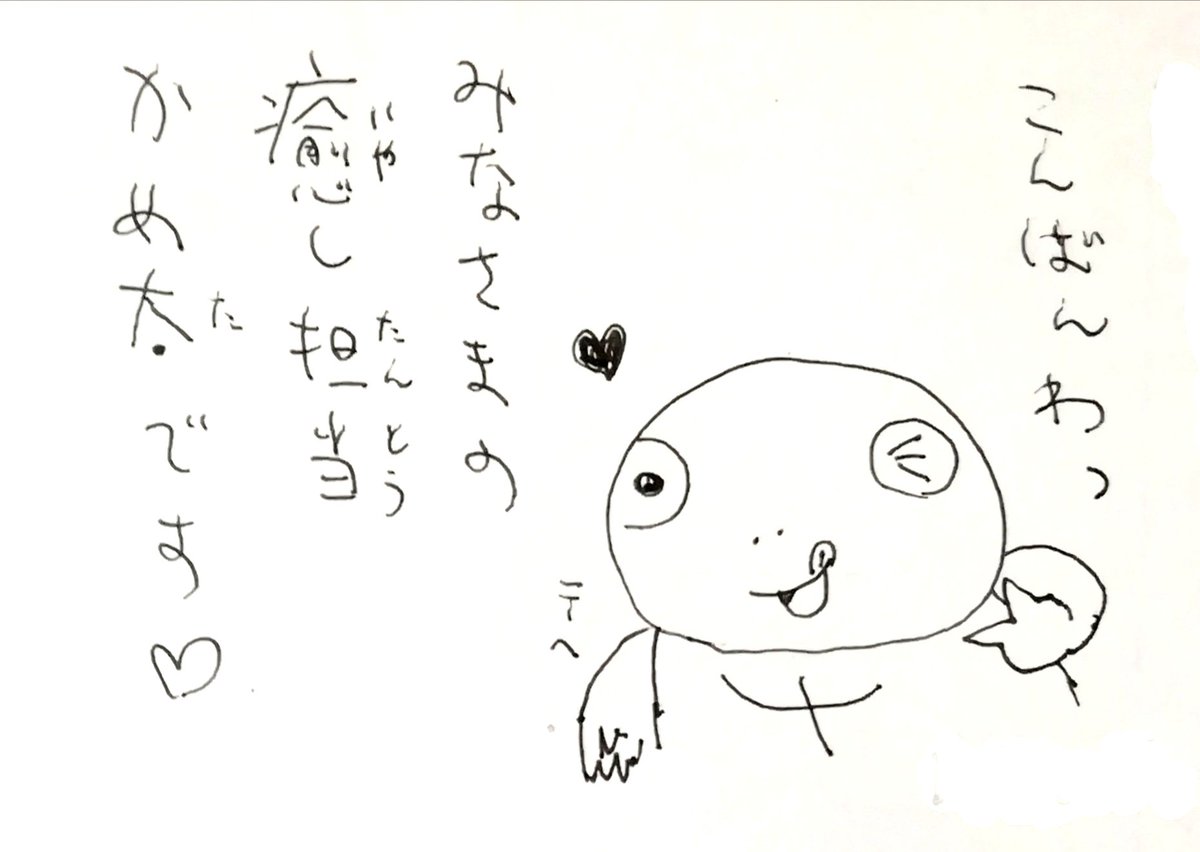 こんばんわっ
みなさまの
癒し担当
いや
たんとう
かめ太です♡
た
テヘ